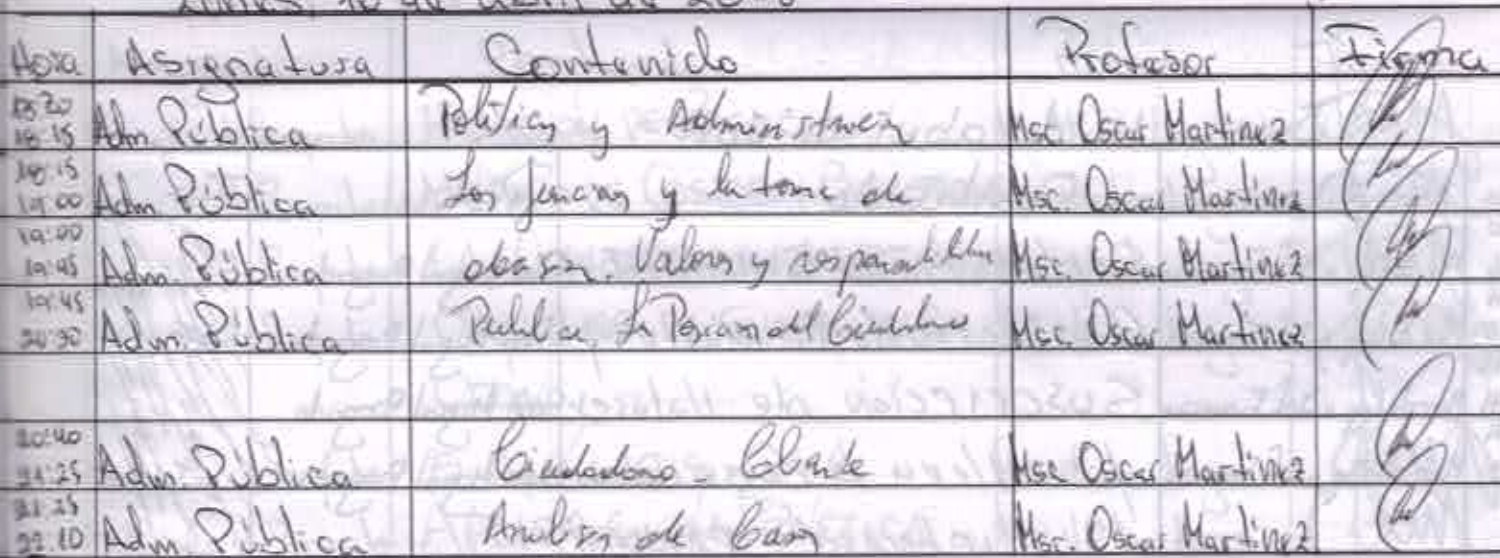 Lunes, 16 de abril de 20
Hora Asignatura Contenido Profesor Firma
18:15 Adm. Pública Política y Administración Msc. Oscar Martinez
18:15
19:00 Adm. Pública Los y la toma de Msc. Oscar Martinez
19:00
19:45 Adm. Pública Valores y Msc. Oscar Martinez
19:45
20:30 Adm. Pública Publica, la del Ciudadano Msc. Oscar Martinez
20:40
21:25 Adm. Pública Ciudadano - Cliente Msc. Oscar Martinez
21:25
22:10 Adm. Pública Analisis de Casos Msc. Oscar Martinez